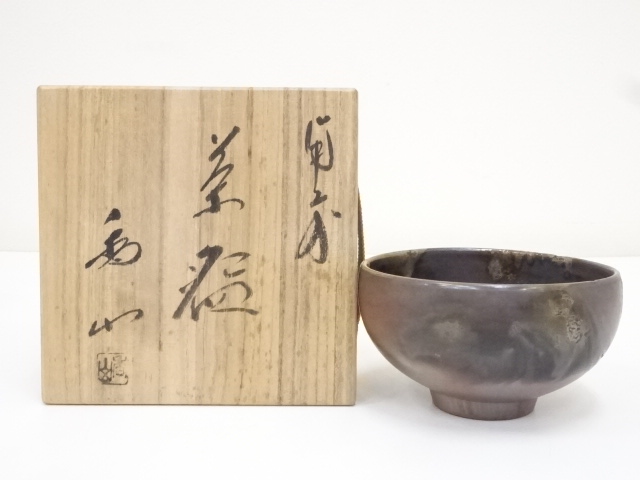 備前
茶碗
秀山